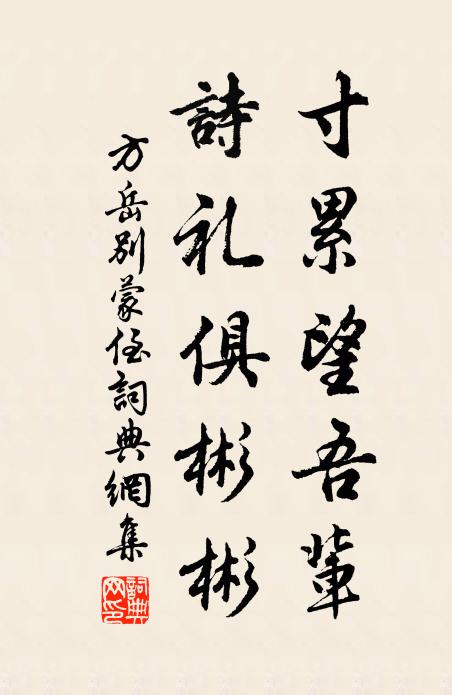 寸累望吾輩
詩礼俱彬彬
方岳别蒙侄詞典網集
詞典网印